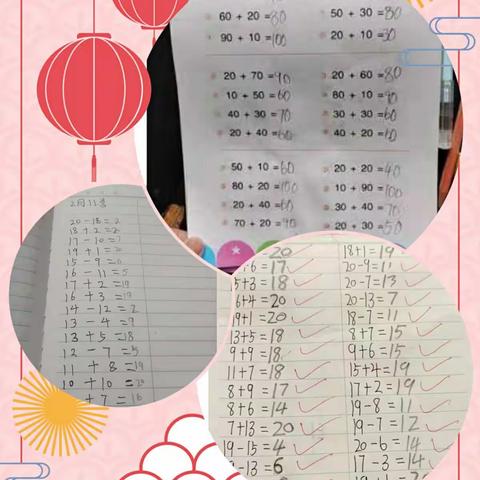 60 + 20 = 80
50 + 30 = 80
90 + 10 = 100
20 + 10 = 30
20 + 70 = 90
20 + 60 = 80
10 + 50 = 60
80 + 10 = 90
40 + 30 = 70
30 + 30 = 60
20 + 40 = 60
40 + 20 = 60
50 + 10 = 60
20 + 20 = 40
80 + 20 = 100
10 + 90 = 100
20 + 40 = 60
30 + 40 = 70
70 + 20 = 90
20 + 30 = 50
2月11
20-18=2
18+2=
17-10=7
19+1=
15-9=6
16-11=5
17+2=19
16+3=19
14-12=2
13-4=9
13+5=18
12-7=5
11+8=19
10+10=20
+7=
20
18+1=19
6=17
20-9=11
15+3=18
20-7=13
16+4=20
20-13=7
19+1=20
18-7=11
13+5=18
8+7=15
9+9=18
9+6=15
11+7=18
15+4=19
8+9=17
17+2=19
8+6=14
19-8=11
7+13=20
19-7=12
19-15=4
20-6=14
-13=6
17-3=14